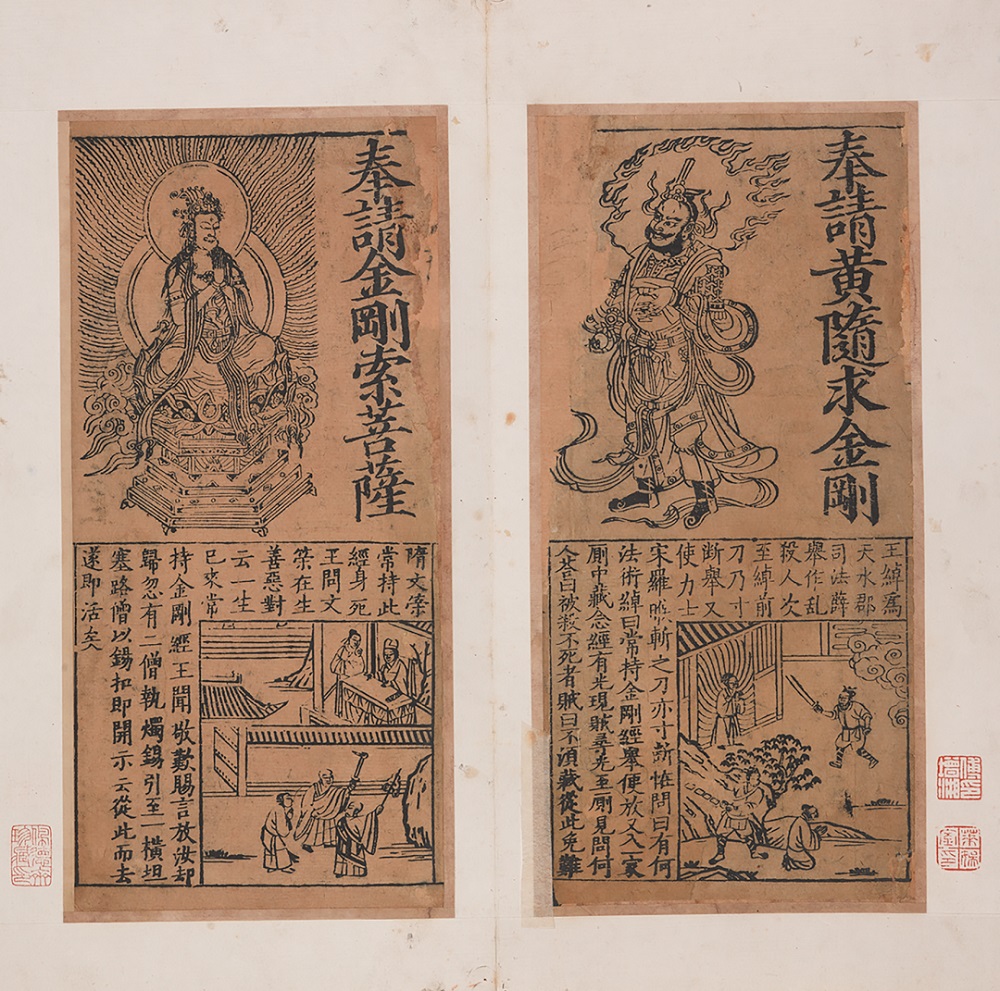 奉請黃隨求金剛
王綽爲
天水郡
司法薛
舉作亂
殺人次
至綽前
刀乃寸
斷舉又
使力士
宋羅㬋斬之刀亦寸斷恠問曰有何
法術綽曰常持金剛經舉便放又人家
厠中藏念經有光現賊尋光至厠見問何
人荅曰被殺不死者賊曰不須藏從此免難
奉請金剛索菩薩
隋文筞
常持此
經身死
王問文
筞在生
善惡對
云一生
已來常
持金剛經王聞敬歎賜言放汝却
歸忽有二僧執燭錫引至一橫坦
塞路僧以錫扣即開示云從此而去
遂即活矣
傅印增湘